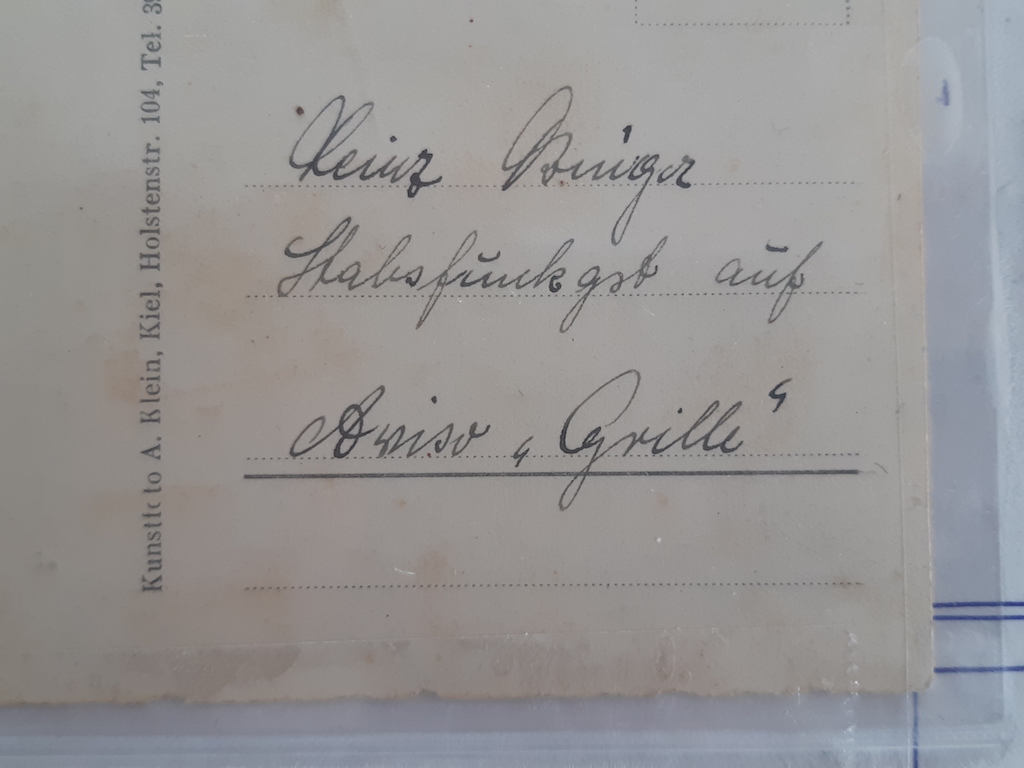 Heinz
Stabsfunkgst auf
Aviso „Grille“
Kunstfoto A. Klein, Kiel, Holstenstr. 104, Tel.